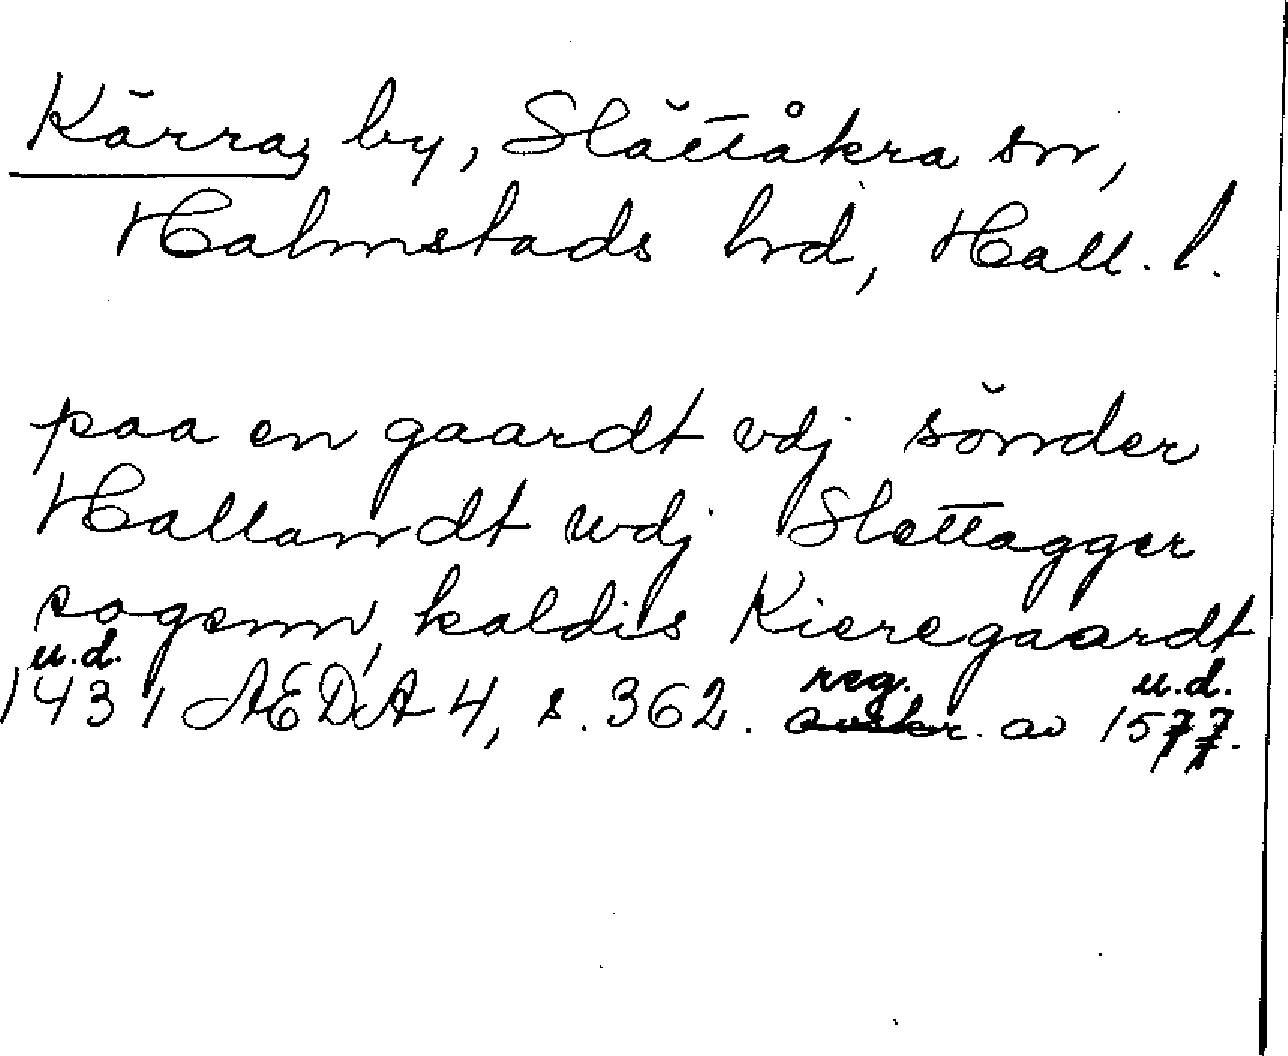 Kärra, by, Slättåkra sn,
Halmstads hrd, Hall. l.
paa en gaardt vdj sönder
Hallandt wdj Slettagger
sogenn, kaldis Kieregaardt
u.d. reg. u.d.
1431 AEDA 4, s. 362. avskr. av 1577.